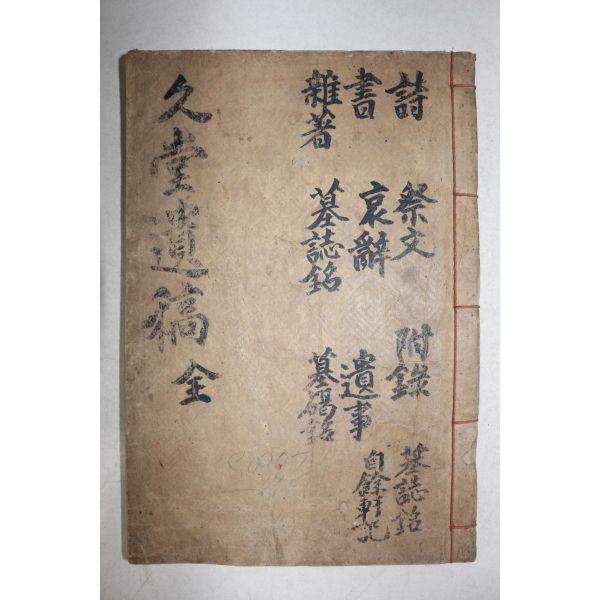 久堂遺稿 全
詩 書 雜著
祭文 哀辭 墓誌銘
附錄 遺事 墓碣銘
墓誌銘 自餘軒記